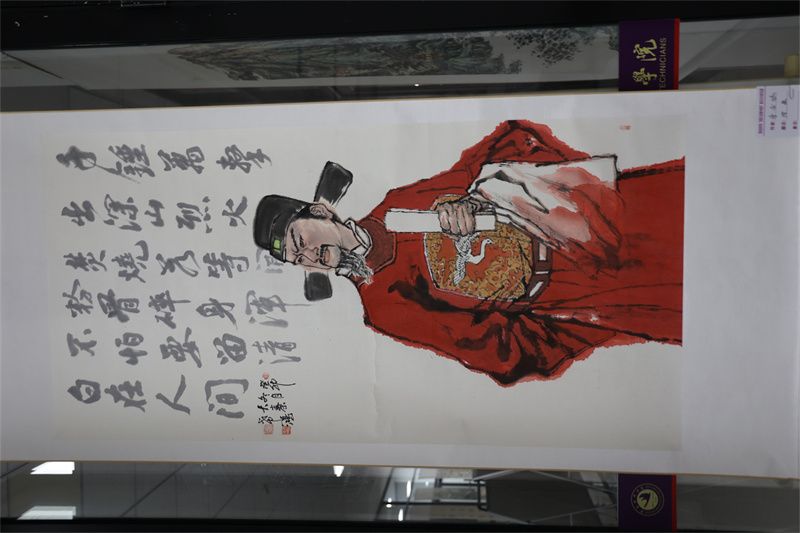 千錘萬擊
出深山烈火
焚燒若等閑
粉骨碎身渾
不怕要留清
白在人間
學院
TECHNICIANS